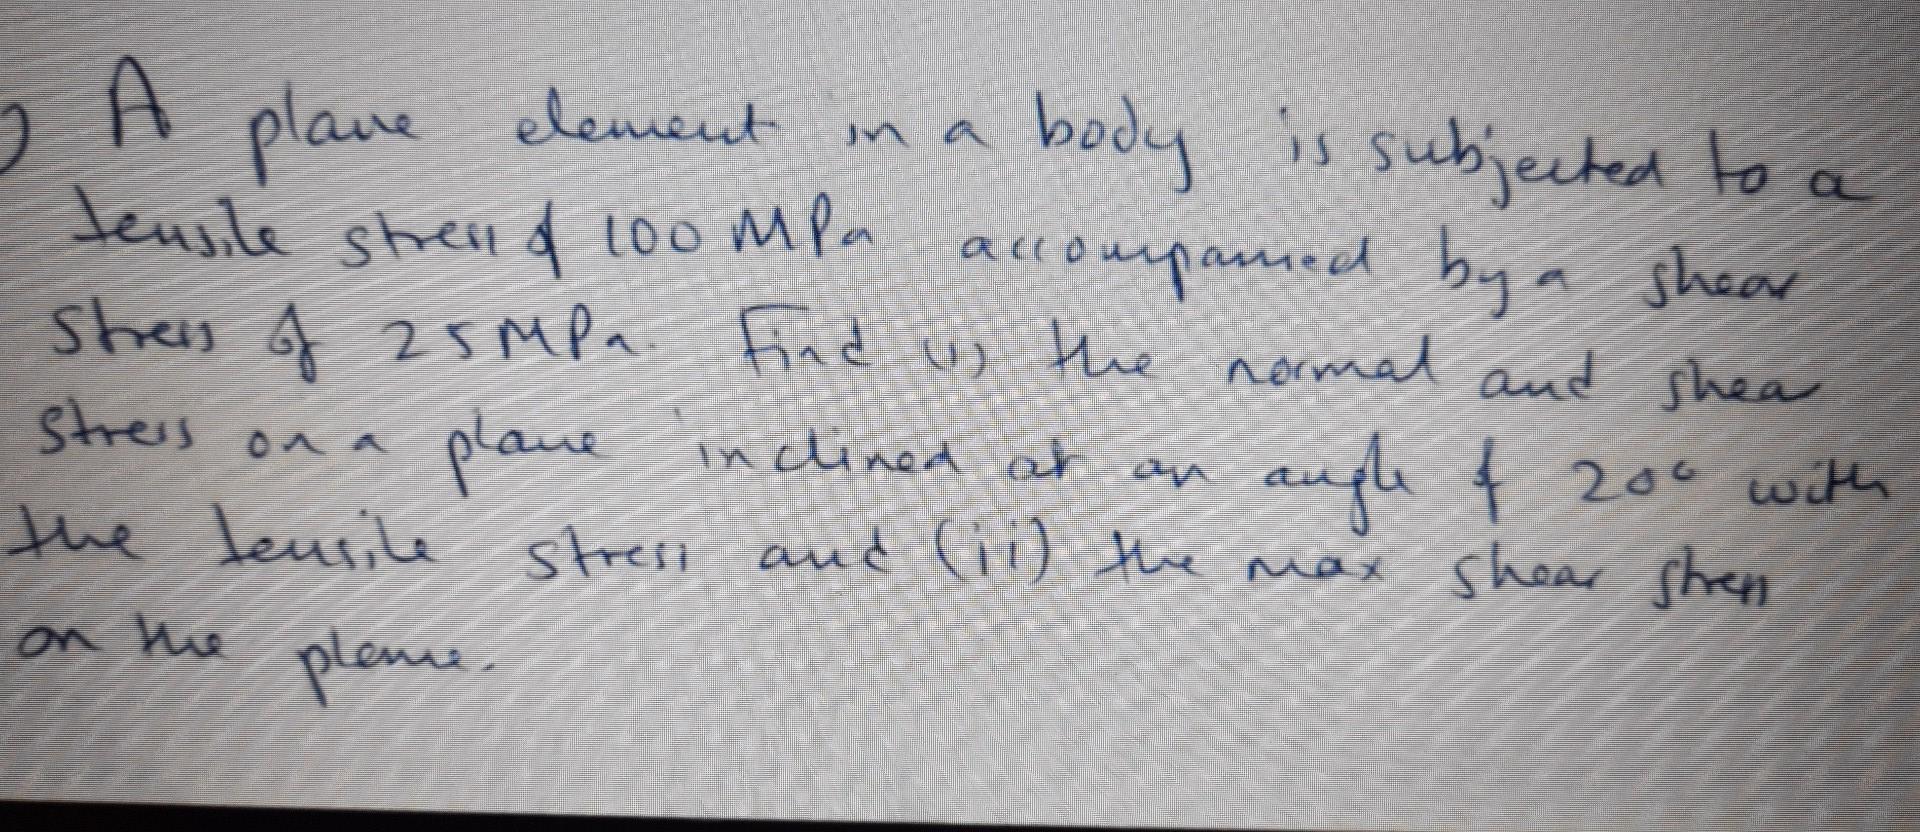 ) A plane element in a body is subjected to a
tensile stress of 100 MPa accompanied by a shear
stress of 25 MPa. Find (i) the normal and shear
stress on a plane inclined at an angle of 20° with
the tensile stress and (ii) the max shear stress
on the plane.